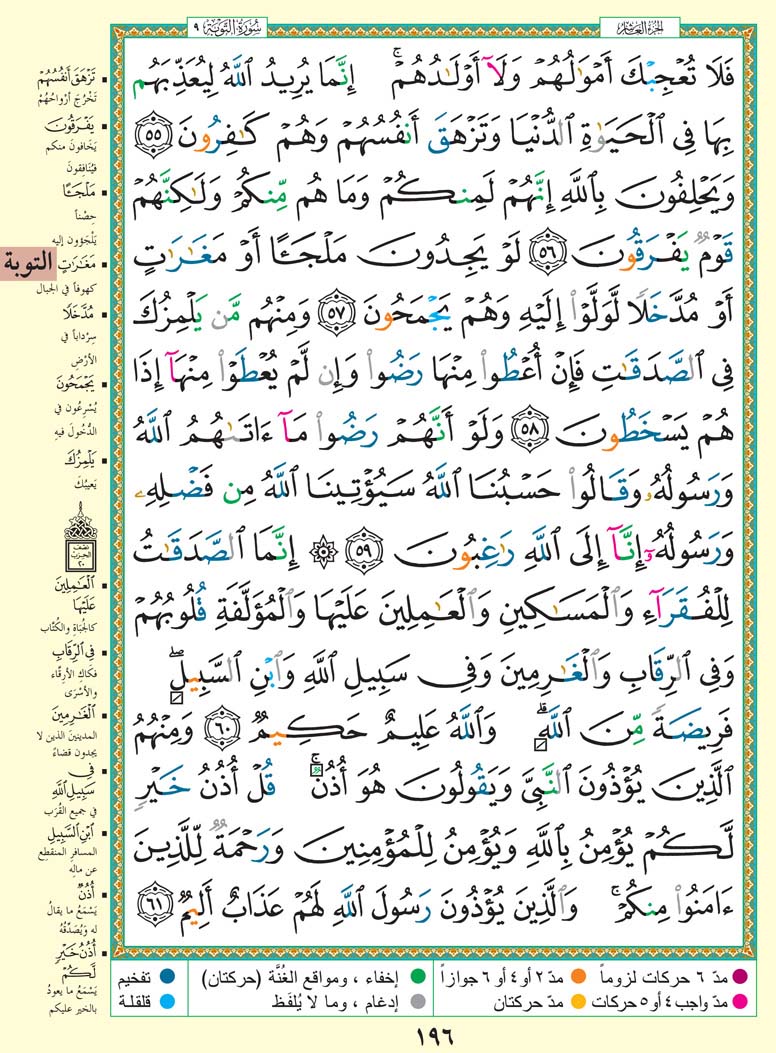 سُورَةُ التَّوْبَةِ ٩
الجُزْءُ العَاشِرُ
فَلَا تُعْجِبْكَ أَمْوَٰلُهُمْ وَلَآ أَوْلَٰدُهُمْ ۚ إِنَّمَا يُرِيدُ ٱللَّهُ لِيُعَذِّبَهُم
بِهَا فِى ٱلْحَيَوٰةِ ٱلدُّنْيَا وَتَزْهَقَ أَنفُسُهُمْ وَهُمْ كَٰفِرُونَ ٥٥
وَيَحْلِفُونَ بِٱللَّهِ إِنَّهُمْ لَمِنكُمْ وَمَا هُم مِّنكُمْ وَلَٰكِنَّهُمْ
قَوْمٌ يَفْرَقُونَ ٥٦ لَوْ يَجِدُونَ مَلْجَـًٔا أَوْ مَغَٰرَٰتٍ
أَوْ مُدَّخَلًا لَّوَلَّوْا۟ إِلَيْهِ وَهُمْ يَجْمَحُونَ ٥٧ وَمِنْهُم مَّن يَلْمِزُكَ
فِى ٱلصَّدَقَٰتِ فَإِنْ أُعْطُوا۟ مِنْهَا رَضُوا۟ وَإِن لَّمْ يُعْطَوْا۟ مِنْهَآ إِذَا
هُمْ يَسْخَطُونَ ٥٨ وَلَوْ أَنَّهُمْ رَضُوا۟ مَآ ءَاتَىٰهُمُ ٱللَّهُ
وَرَسُولُهُۥ وَقَالُوا۟ حَسْبُنَا ٱللَّهُ سَيُؤْتِينَا ٱللَّهُ مِن فَضْلِهِۦ
وَرَسُولُهُۥٓ إِنَّآ إِلَى ٱللَّهِ رَٰغِبُونَ ٥٩ ۞ إِنَّمَا ٱلصَّدَقَٰتُ
لِلْفُقَرَآءِ وَٱلْمَسَٰكِينِ وَٱلْعَٰمِلِينَ عَلَيْهَا وَٱلْمُؤَلَّفَةِ قُلُوبُهُمْ
وَفِى ٱلرِّقَابِ وَٱلْغَٰرِمِينَ وَفِى سَبِيلِ ٱللَّهِ وَٱبْنِ ٱلسَّبِيلِ ۖ
فَرِيضَةً مِّنَ ٱللَّهِ ۗ وَٱللَّهُ عَلِيمٌ حَكِيمٌ ٦٠ وَمِنْهُمُ
ٱلَّذِينَ يُؤْذُونَ ٱلنَّبِىَّ وَيَقُولُونَ هُوَ أُذُنٌ ۚ قُلْ أُذُنُ خَيْرٍ
لَّكُمْ يُؤْمِنُ بِٱللَّهِ وَيُؤْمِنُ لِلْمُؤْمِنِينَ وَرَحْمَةٌ لِّلَّذِينَ
ءَامَنُوا۟ مِنكُمْ ۚ وَٱلَّذِينَ يُؤْذُونَ رَسُولَ ٱللَّهِ لَهُمْ عَذَابٌ أَلِيمٌ ٦١
تَزْهَقَ أَنفُسُهُمْ
تَخْرُجَ أرْوَاحُهُمْ
يَفْرَقُونَ
يَخافونَ منكم
فيُنَافِقونَ
مَلْجَـًٔا
حِصْناً
يَلْجَؤون إليه
مَغَٰرَٰتٍ
كهوفاً في الجبال
مُدَّخَلًا
سِرْدَاباً في
الأرْضِ
يَجْمَحُونَ
يُسْرِعُون في
الدُّخُولِ فيهِ
يَلْمِزُكَ
يَعيبُكَ
نصف
الحزب
٢٠
ٱلْعَٰمِلِينَ
عَلَيْهَا
كالجُبَاةِ والكُتَّابِ
فِي ٱلرِّقَابِ
فكاكِ الأرِقَّاء
والأسْرَى
ٱلْغَٰرِمِينَ
المدينينَ الذين لا
يجدون قضاءً
فِى
سَبِيلِ ٱللَّهِ
في جميع القُرَب
ٱبْنِ ٱلسَّبِيلِ
المسافرِ المنقطِعِ
عن مالِه
أُذُنٌ
يَسْمَعُ ما يقالُ
له ويُصَدِّقُهُ
أُذُنُ خَيْرٍ
لَّكُمْ
يَسْمَعُ ما يعودُ
بالخير عليكم
التوبة
مدّ ٦ حركات لزوماً
مدّ ٢ أو ٤ أو ٦ جوازاً
إخفاء ، ومواقع الغُنَّة (حركتان)
تفخيم
مدّ واجب ٤ أو ٥ حركات
مدّ حركتان
إدغام ، وما لا يُلفَظ
قلقلة
١٩٦